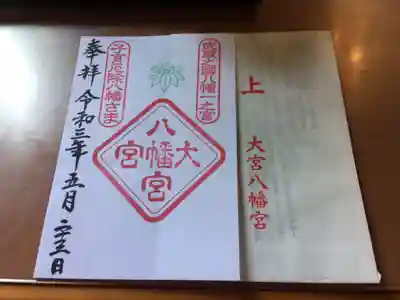 上
大宮八幡宮
武蔵国八幡一之宮
大宮八幡宮
子育厄除八幡さま
奉拝 令和三年五月二十三日